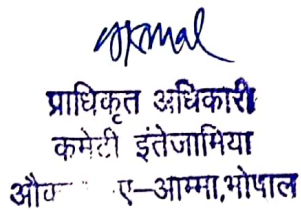 प्राधिकृत अधिकारी
कमेटी इंतेजामिया
ए-आम्मा,भोपाल